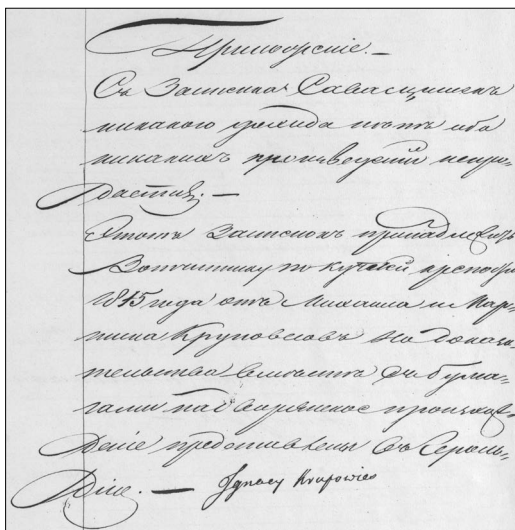 Примѣчаніе. —
Съ Застѣнка Савасщишекъ
никакого дохода нѣтъ ибо
никакихъ произведеній непро-
дается. —
Этотъ Застѣнокъ принадлежитъ
Вотчиннику по купчей крѣпости
1815 года отъ Михаила и Мар-
цина Круповесовъ но доказа-
тельства вмѣстѣ съ бума-
гами на Дворянское происхож-
деніе представлены въ Героль-
дію. — Ignacy Krupowies